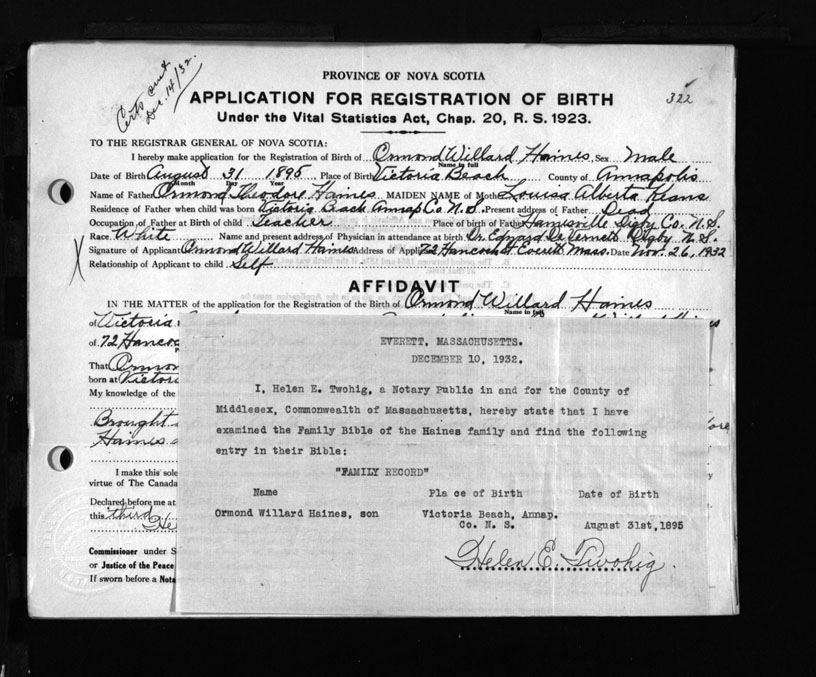 Certs sent
Dec. 14/32.
PROVINCE OF NOVA SCOTIA
APPLICATION FOR REGISTRATION OF BIRTH
322
Under the Vital Statistics Act, Chap. 20, R. S. 1923.
TO THE REGISTRAR GENERAL OF NOVA SCOTIA:
I hereby make application for the Registration of Birth of Ormond Willard Haines Sex Male
Name in full
Date of Birth August 31 1895 Place of Birth Victoria Beach County of Annapolis
Month Day Year
Name of Father Ormond Theodore Haines MAIDEN NAME of Mother Louisa Alberta Keans
Residence of Father when child was born Victoria Beach Annap Co N.S. Present address of Father Dead
Occupation of Father at Birth of child Teacher Place of birth of Father Digby Co. N.S.
Race White Name and present address of Physician in attendance at birth Dr. Edward Digby N.S.
Signature of Applicant Ormond Willard Haines Address of Applicant 72 Hancock St. Everett Mass. Date Nov. 26, 1932
X
Relationship of Applicant to child Self
AFFIDAVIT
IN THE MATTER of the application for the Registration of the Birth of Ormond Willard Haines
Name in full
of Victoria
of 72 Hancoc
That Ormon
born at Victoria
My knowledge of the
Brought
Haines
I make this sole
virtue of The Canada
Declared before me at
this third
He
Commissioner under S
or Justice of the Peace
If sworn before a Nota
EVERETT, MASSACHUSETTS.
DECEMBER 10, 1932.
I, Helen E. Twohig, a Notary Public in and for the County of
Middlesex, Commonwealth of Massachusetts, hereby state that I have
examined the Family Bible of the Haines family and find the following
entry in their Bible:
"FAMILY RECORD"
Name Place of Birth Date of Birth
Ormond Willard Haines, son Victoria Beach, Annap.
Co. N. S. August 31st,1895
Helen E. Twohig.